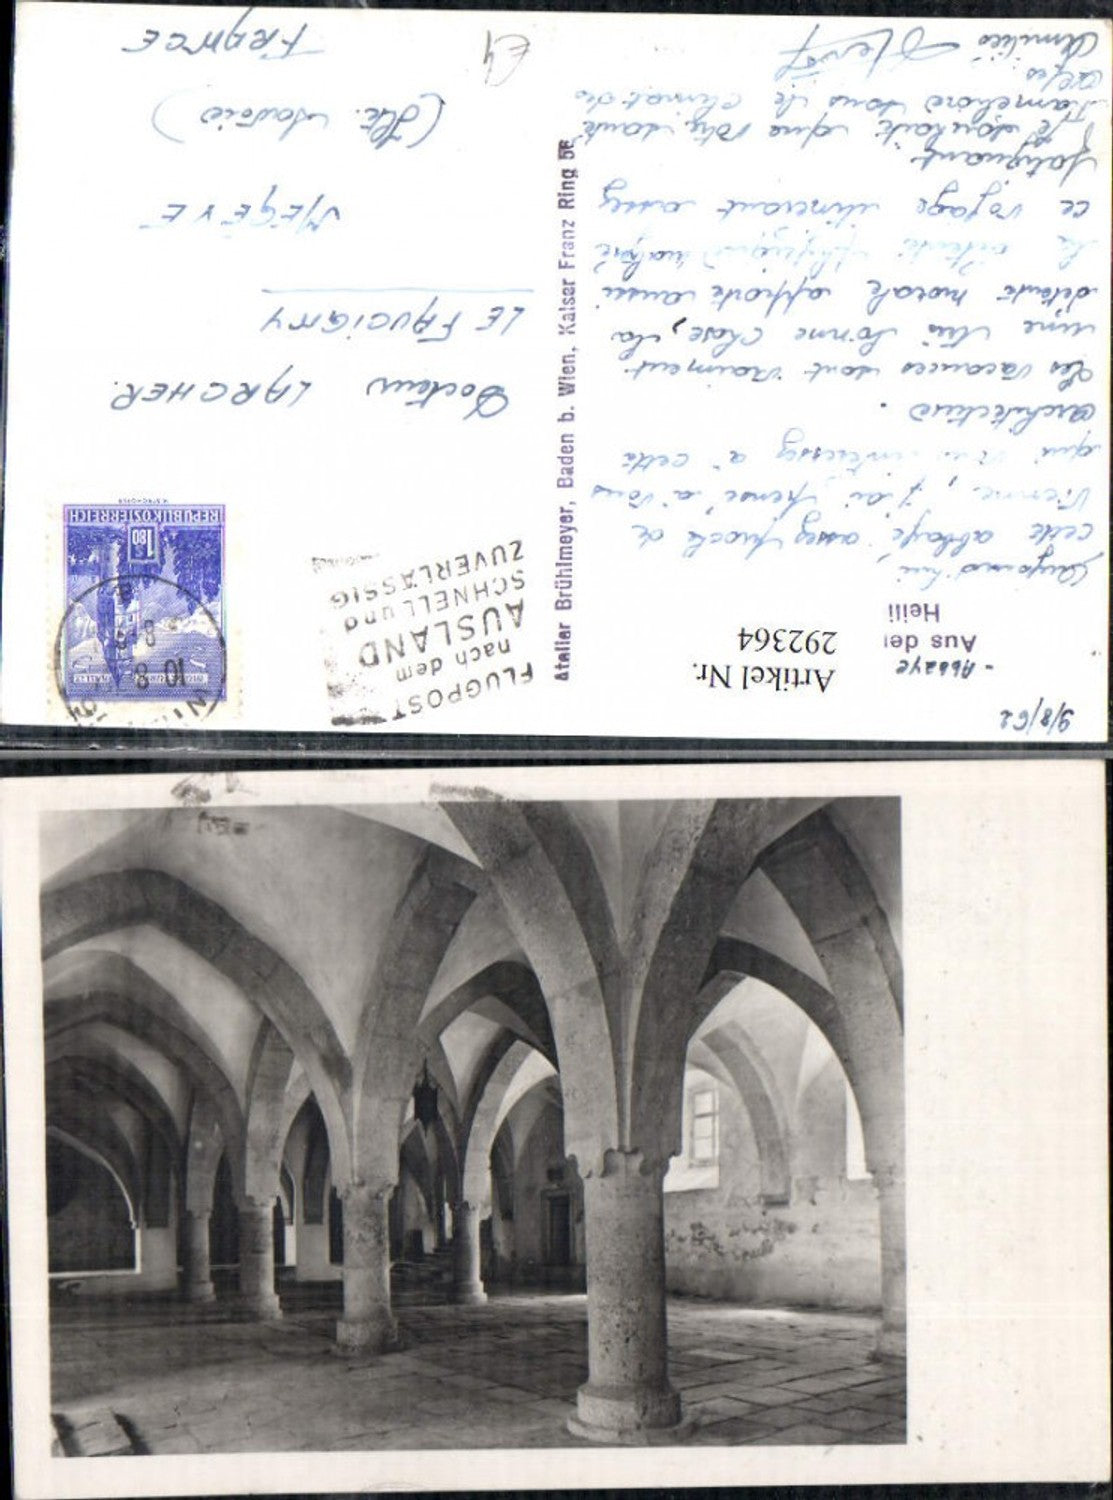 9/8/62
- ABBAYE
Aus der
Heili
Artikel Nr.
292364
Aujourd'hui,
cette abbaye, assez proche de
Vienne, j'ai pensé à vous
qui vous intéressez à cette
architecture.
Les vacances sont vraiment
une très bonne chose, la
détente morale apporte aussi
la détente physique, malgré
ce voyage itinérant assez
fatiguant.
Je souhaite que votre santé
s'améliore sous le climat des
alpes.
Amitiés
Atelier Brühlmeyer, Baden b. Wien, Kaiser Franz Ring 56
FLUGPOST
nach dem
AUSLAND
SCHNELL und
ZUVERLÄSSIG
REPUBLIK ÖSTERREICH
1.80
10.8
Docteur LARCHER.
LE FAUCIGNY
MEGÈVE
(Hte. Savoie)
FRANCE
E4